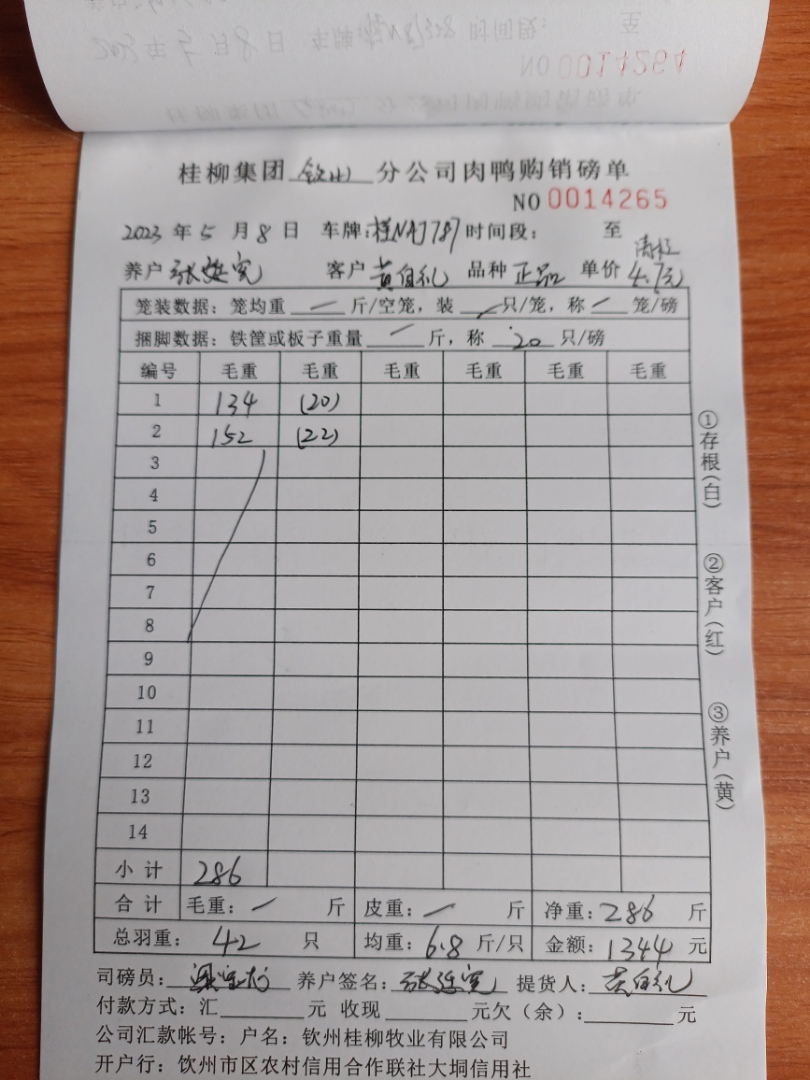 NO 0014264
2023 年 5 月 8 日 车牌: 时间段: 至
桂柳集团 钦州 分公司肉鸭购销磅单
NO 0014265
2023 年 5 月 8 日 车牌: 桂NAJ787 时间段: 至
养户 张延宽 客户 黄自礼 品种 正品 单价 4.7元
笼装数据: 笼均重 一 斤/空笼, 装 一 只/笼, 称 一 笼/磅
捆脚数据: 铁筐或板子重量 一 斤, 称 20 只/磅
编号 毛重 毛重 毛重 毛重 毛重 毛重
1 134 (20)
2 152 (22)
3
4
5
6
7
8
9
10
11
12
13
14
小计 286
合计 毛重: 一 斤 皮重: 一 斤 净重: 286 斤
总羽重: 42 只 均重: 6.8 斤/只 金额: 1344 元
司磅员: 养户签名: 张延宽 提货人: 黄自礼
付款方式: 汇 元 收现 元欠(余): 元
公司汇款帐号: 户名: 钦州桂柳牧业有限公司
开户行: 钦州市区农村信用合作联社大垌信用社
①存根(白)
②客户(红)
③养户(黄)